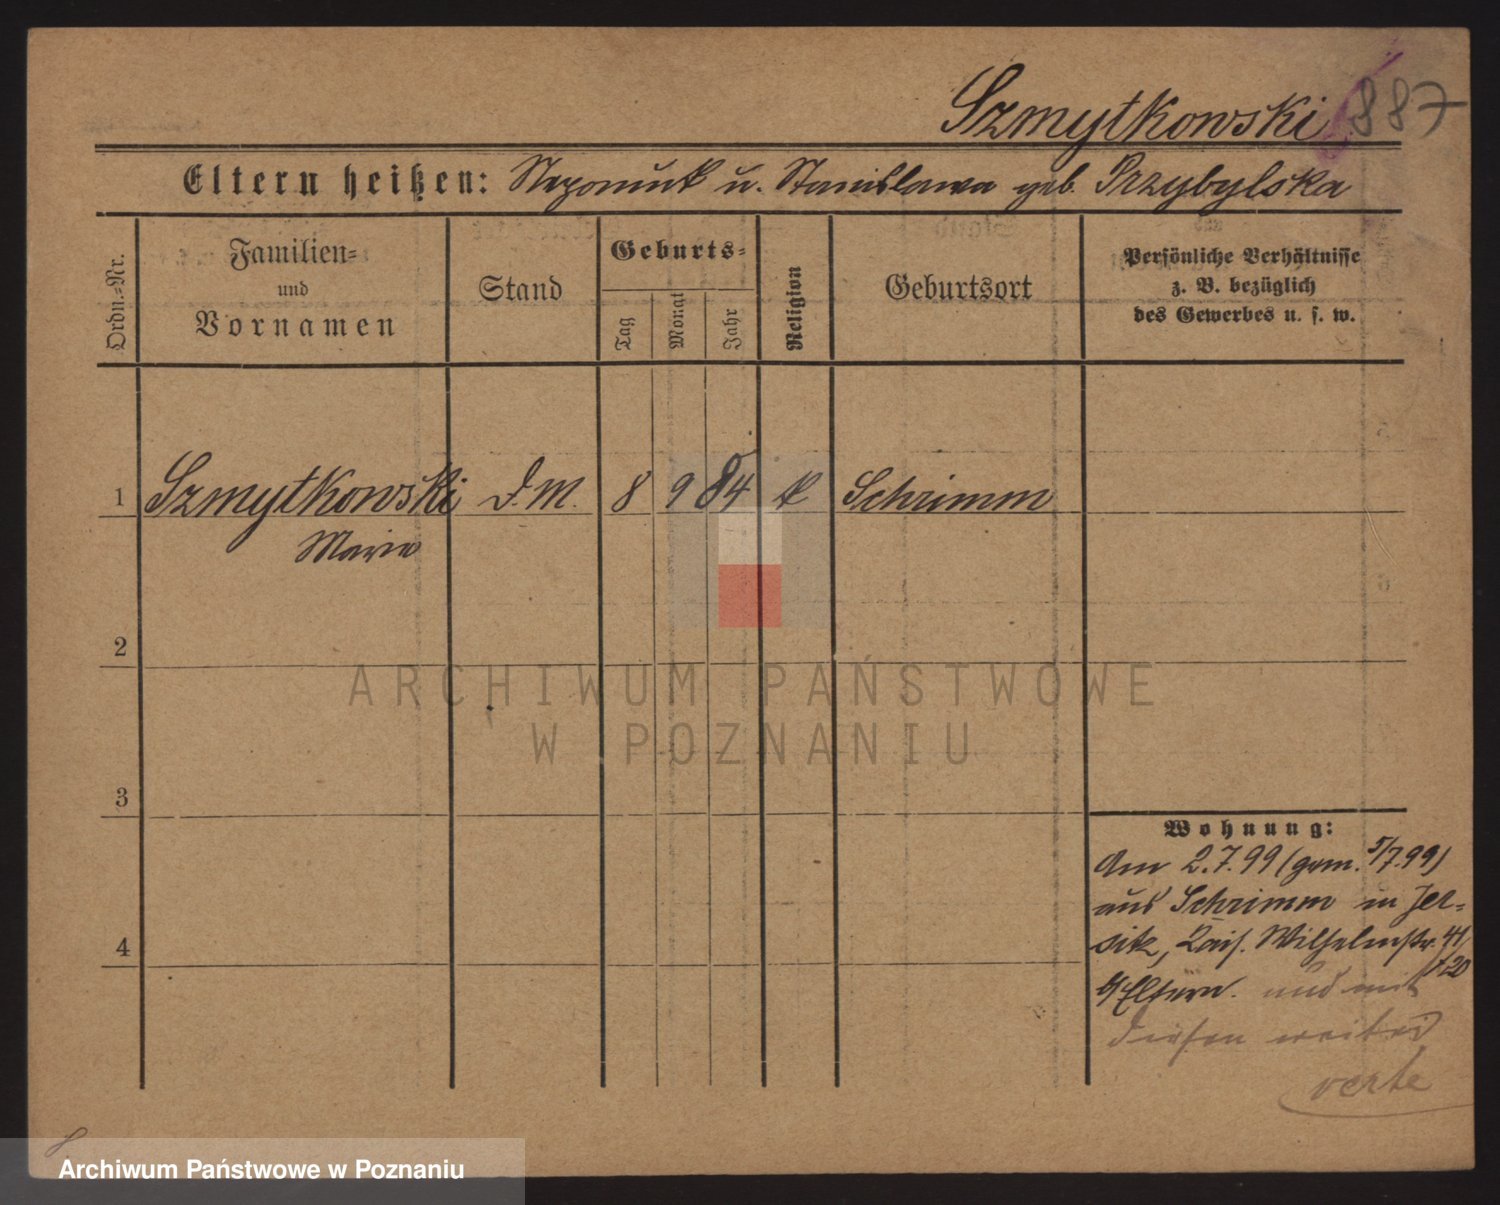 Szmytkowski 887
Eltern heißen: Nepomuk u. Stanislawa geb. Przybylska
Ordn.-Nr.
Familien-
und
Vornamen
Stand
Geburts-
Tag
Monat
Jahr
Religion
Geburtsort
Persönliche Verhältnisse
z. B. bezüglich
des Gewerbes u. s. w.
1 Szmytkowski D. M. 8 9 84 k Schrimm
Marie
2
3
4
Wohnung:
Am 2.7.99 (gem. 5/7.99)
aus Schrimm in Jer-
sik, Kais. Wilhelmstr. 41/
b/Eltern. und mit
diesen weiter
verte
ARCHIWUM PAŃSTWOWE
W POZNANIU
Archiwum Państwowe w Poznaniu